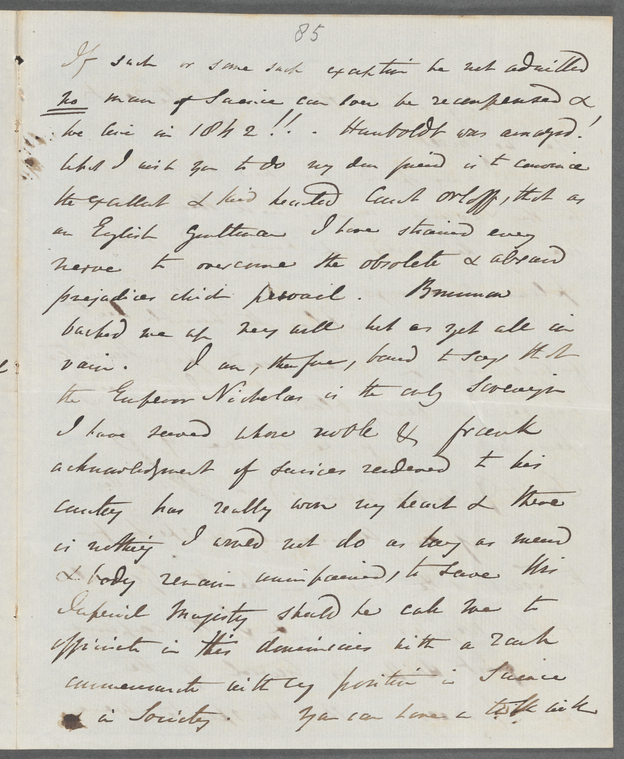 85
If such or some such exception be not admitted
no man of Science can ever be recompensed &
we live in 1842!! . Humboldt was annoyed!
What I wish you to do my dear friend is to convince
the excellent & kind hearted Count Orloff, that as
an English Gentleman I have strained every
nerve to overcome the obsolete & absurd
prejudices which prevail. Brunnow
backed me up very well but as yet all in
vain. I am, therefore, bound to say that
the Emperor Nicholas is the only Sovereign
I have served whose noble & frank
acknowledgment of services rendered to his
country has really won my heart & there
is nothing I would not do as long as mind
& body remain unimpaired, to serve His
Imperial Majesty should he call me to
officiate in his dominions with a rank
commensurate with my position in Science
& in Society. You can have a talk with